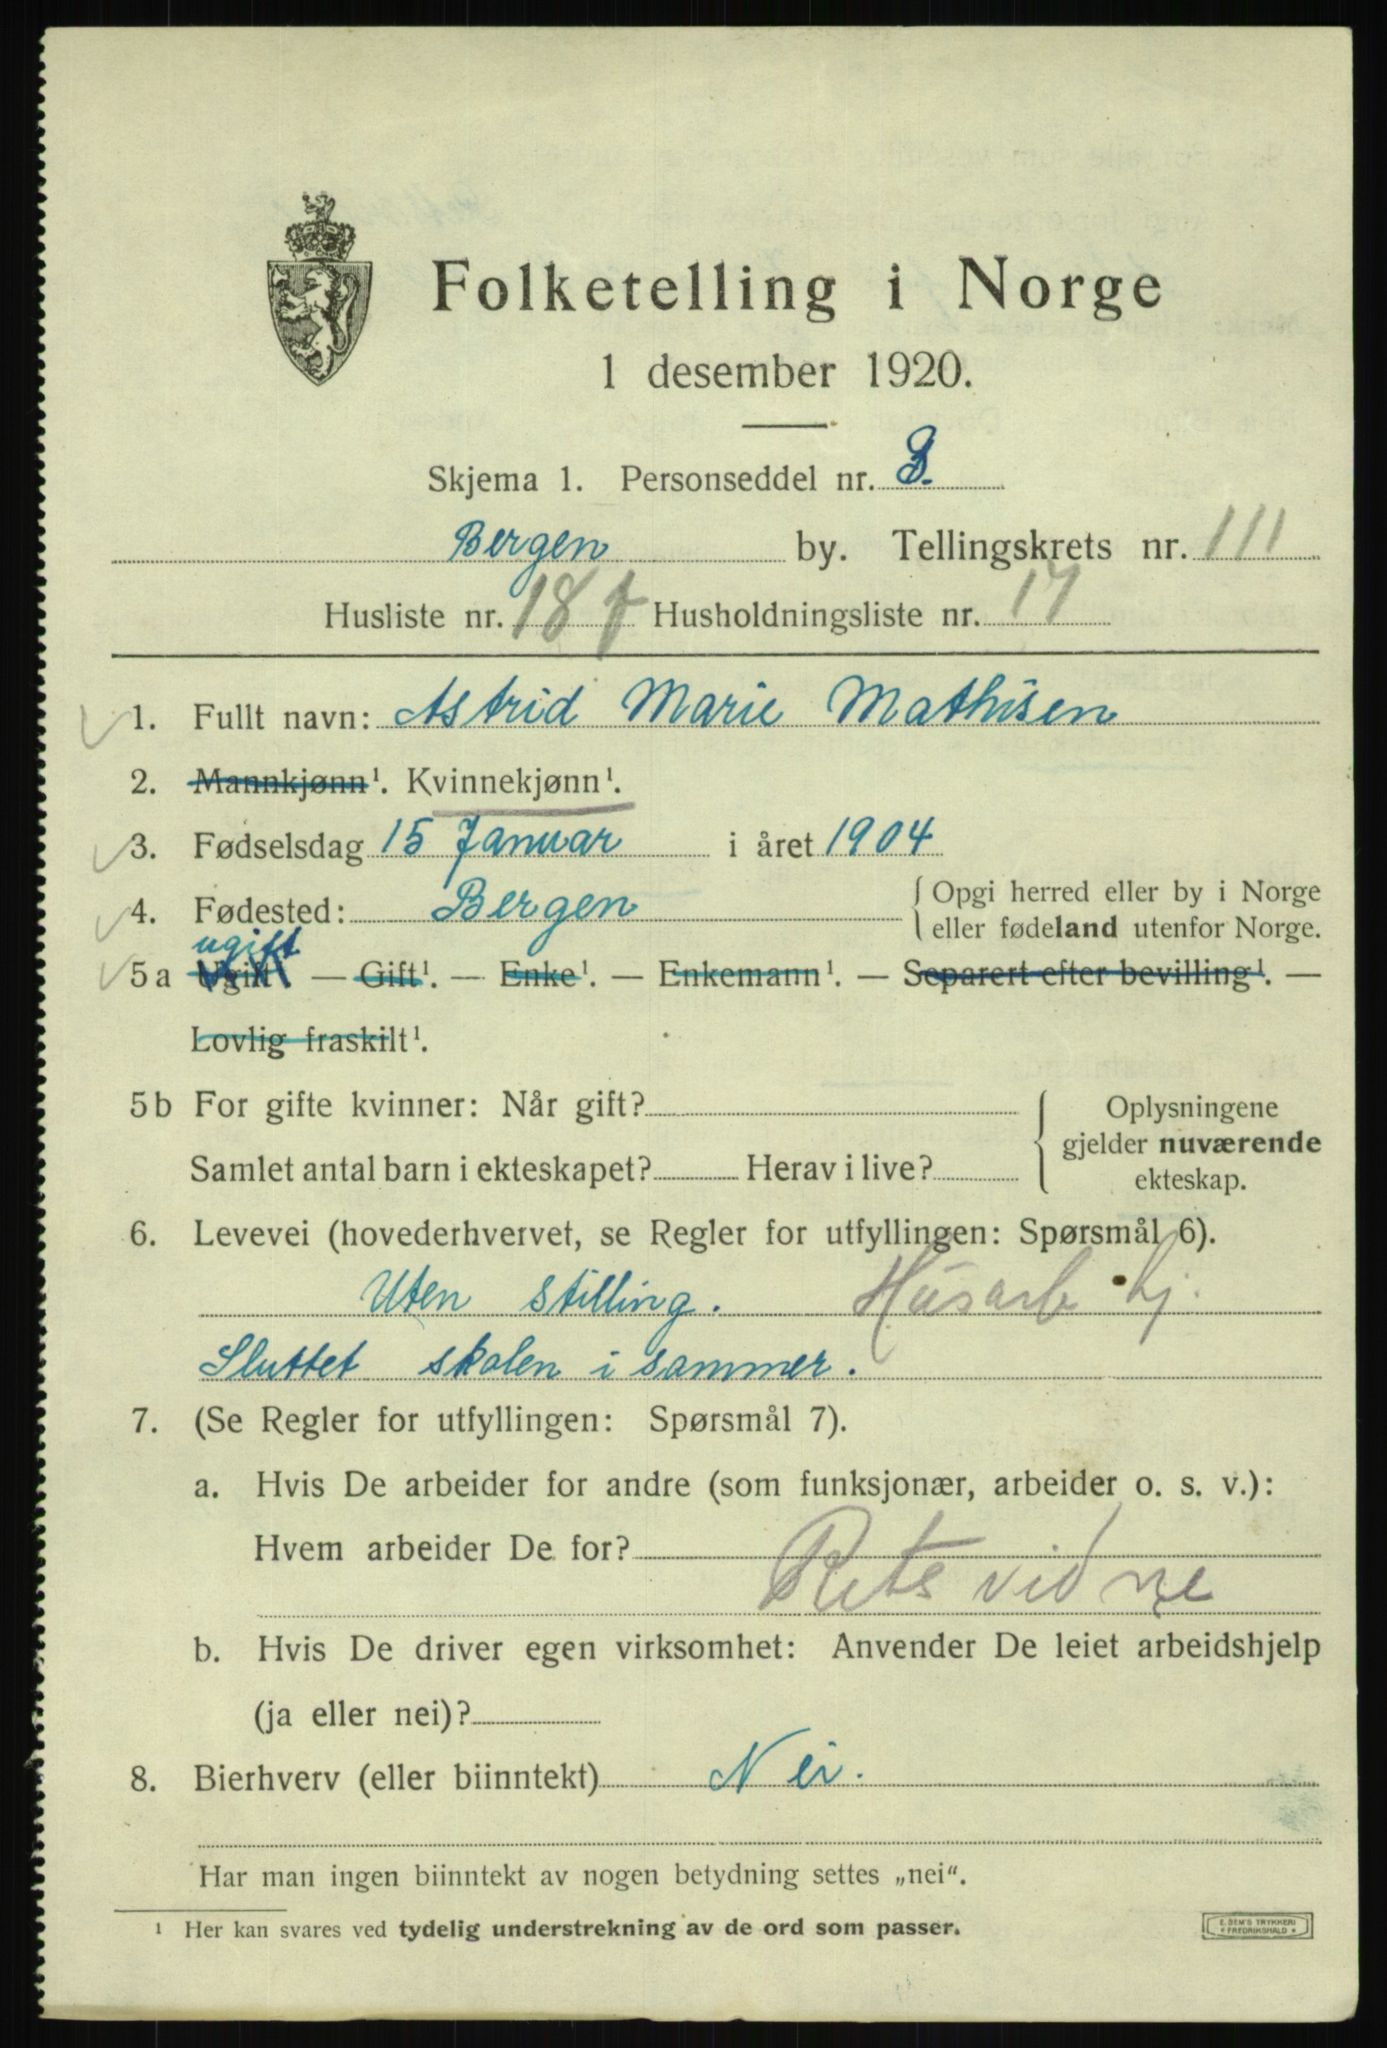 Folketelling i Norge
1 desember 1920.
Skjema 1. Personseddel nr. 3.
Bergen by. Tellingskrets nr. 111
Husliste nr. 187 Husholdningsliste nr. 17
1. Fullt navn: Astrid Marie Mathisen
2. Mannkjønn¹. Kvinnekjønn¹.
3. Fødselsdag 15 Januar i året 1904
4. Fødested: Bergen { Opgi herred eller by i Norge
eller fødeland utenfor Norge.
ugift
5 a Ugift¹ — Gift¹. — Enke¹. — Enkemann¹. — Separert efter bevilling¹. —
Lovlig fraskilt¹.
5 b For gifte kvinner: Når gift? { Oplysningene
gjelder nuværende
Samlet antal barn i ekteskapet? Herav i live?
ekteskap.
6. Levevei (hovederhvervet, se Regler for utfyllingen: Spørsmål 6).
Uten stilling. Husarb hj.
Sluttet skolen i sommer.
7. (Se Regler for utfyllingen: Spørsmål 7).
a. Hvis De arbeider for andre (som funksjonær, arbeider o. s. v.):
Hvem arbeider De for?
Retsvidne
b. Hvis De driver egen virksomhet: Anvender De leiet arbeidshjelp
(ja eller nei)?
8. Bierhverv (eller biinntekt) Nei.
Har man ingen biinntekt av nogen betydning settes „nei“.
¹ Her kan svares ved tydelig understrekning av de ord som passer.
E. SEM'S TRYKKERI
FREDRIKSHALD